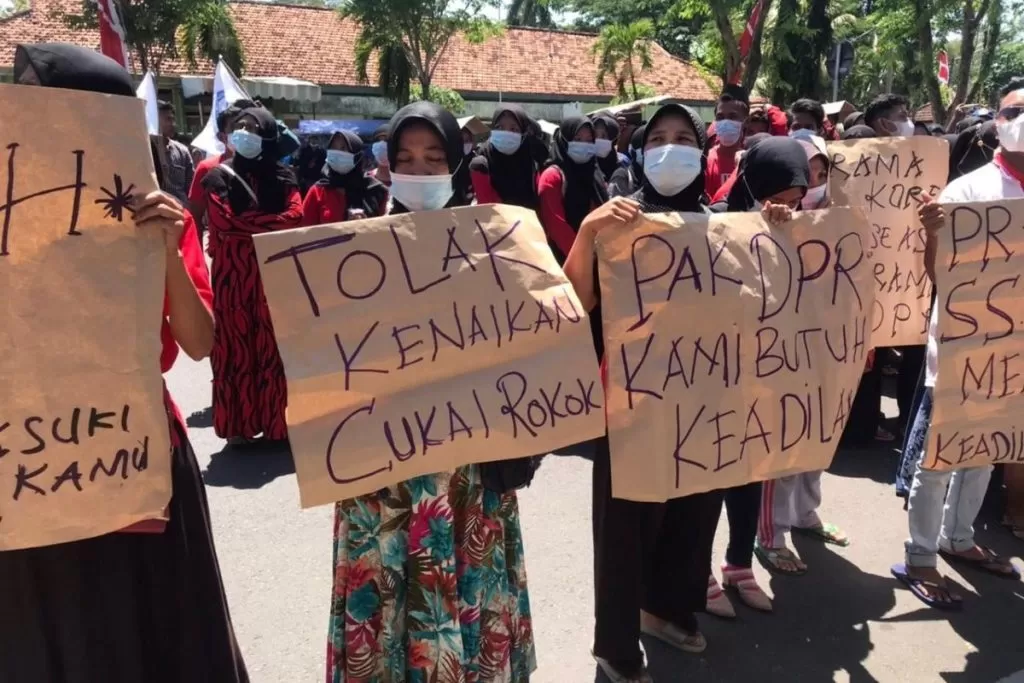 H*
SUKI
KAMU
TOLAK
KENAIKAN
CUKAI ROKOK
PAK DPR
KAMI BUTUH
KEADILAN
RAMA
PR
SS
ME
KEADIL